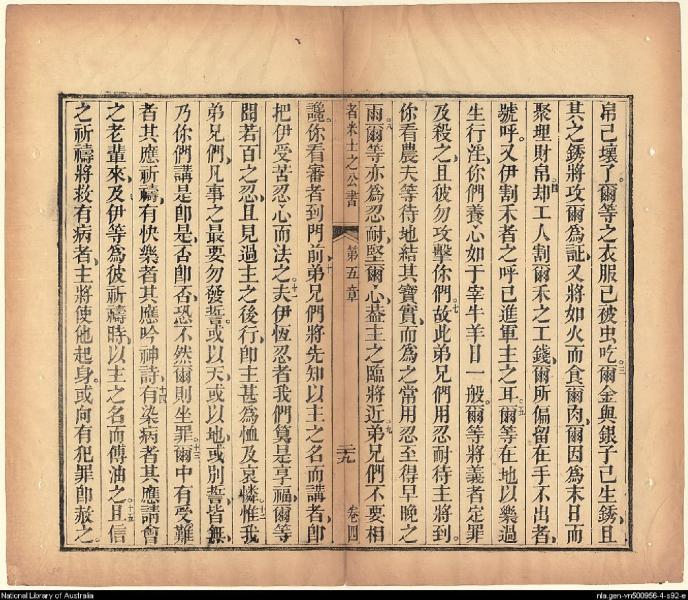 帛己壞了。爾等之衣服已被虫吃。三爾金與銀子已生銹、且
其之銹將攻爾爲証、又將如火而食爾肉、爾因爲末日而
聚埋財帛。四却工人割爾禾之工錢、爾所偏留在手不出者、
號呼。又伊割禾者之呼已進軍主之耳。五爾等在地以樂過
生行淫、你們養心如于宰牛羊日一般。六爾等將義者定罪
及殺之、且彼勿攻擊你們。七故此弟兄們用忍耐待主將到。
你看農夫等待地結其寶實、而爲之常用忍至得早晚之
雨。八爾等亦爲忍耐、堅爾心、葢主之臨將近。九弟兄們不要相
者米士之公書 第五章 二十九 卷四
讒。你看審者到門前。十弟兄們將先知以主之名而講者、卽
把伊受苦忍心而法之。十一夫伊恆忍者我們算是享福、爾等
聞若百之忍、且見過主之後行、卽主甚爲恤及哀憐。十二惟我
弟兄們、凡事之最要勿發誓。或以天、或以地、或別誓、皆無、
乃你們講是卽是、否卽否、恐不然爾則坐罪。十三爾中有受難
者其應祈禱、有快樂者其應吟神詩。十四有染病者其應請會
之老輩來、及伊等爲彼祈禱時、以主之名而傅油之。十五且信
之祈禱將救有病者、主將使他起身。或向有犯罪卽赦之。
National Library of Australia
nla.gen-vn500956-4-s92-e